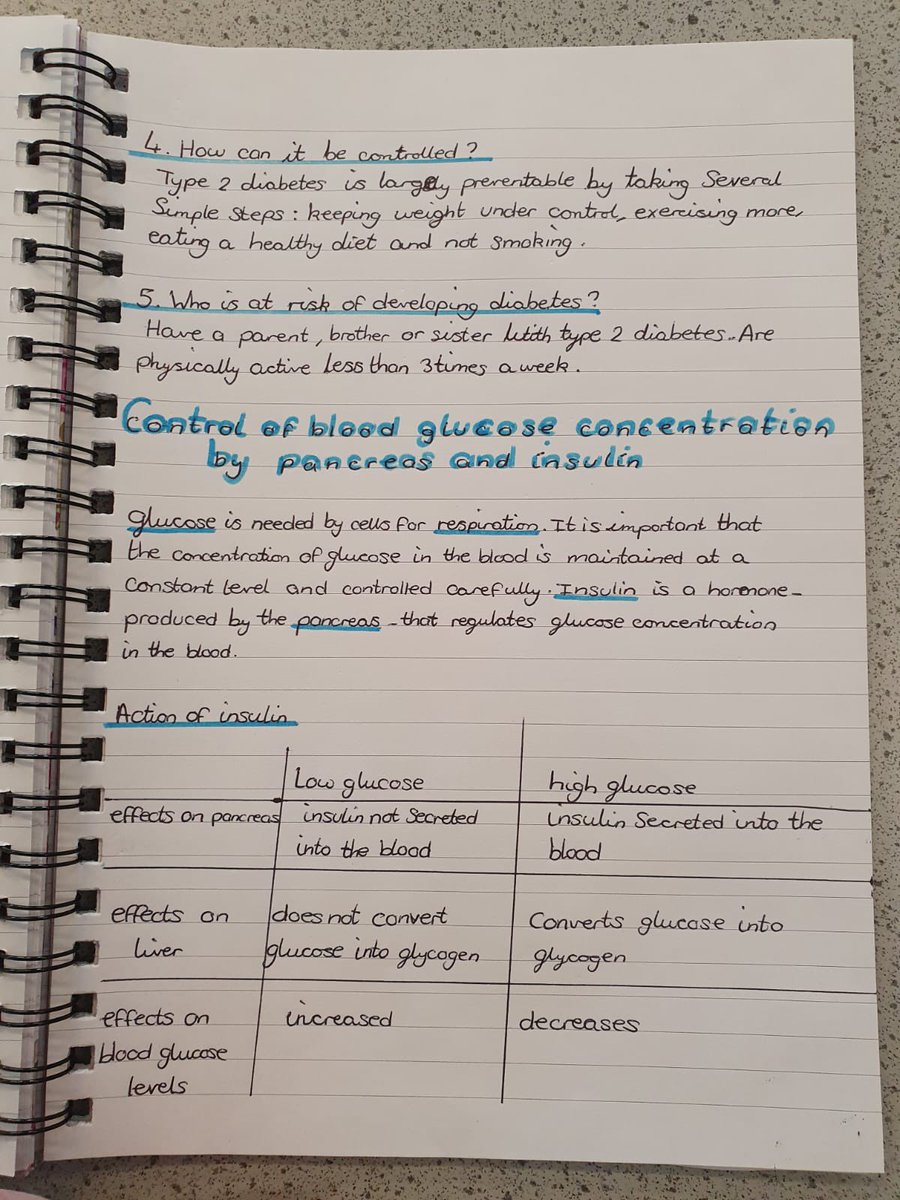 4. How can it be controlled?
Type 2 diabetes is largely preventable by taking Several
Simple steps: keeping weight under control, exercising more,
eating a healthy diet and not smoking.
5. Who is at risk of developing diabetes?
Have a parent, brother or sister with type 2 diabetes.. Are
physically active less than 3 times a week.
Control of blood glucose concentration
by pancreas and insulin
glucose is needed by cells for respiration. It is important that
the concentration of glucose in the blood is maintained at a
constant level and controlled carefully. Insulin is a homone -
produced by the pancreas - that regulates glucose concentration
in the blood.
Action of insulin
Low glucose high glucose
effects on pancreas insulin not Secreted insulin Secreted into the
into the blood blood
effects on does not convert Converts glucose into
liver glucose into glycogen glycogen
effects on increased decreases
blood glucose
levels